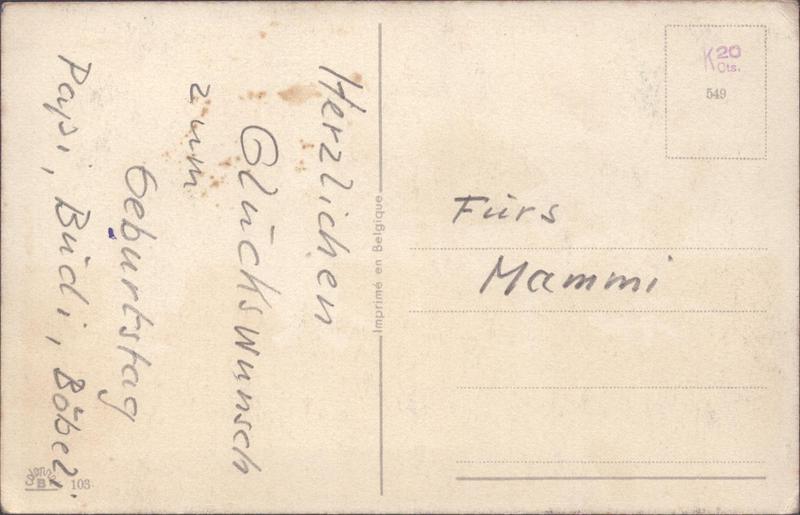 Herzlichen
Glückswunsch
zum
Geburtstag
Papi, Büdi, Böbeli
Imprimé en Belgique
Fürs
Mammi
K 20
Cts.
549
B
103